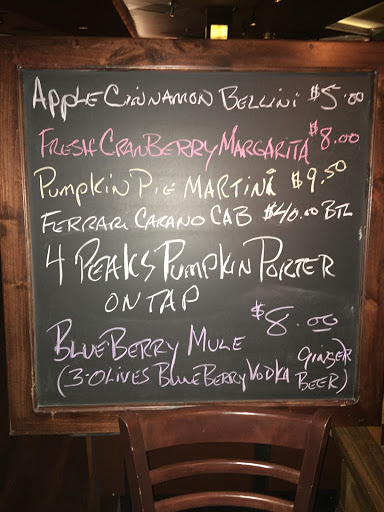 Apple Cinnamon Bellini $5.00
Fresh Cranberry Margarita $8.00
Pumpkin Pie Martini $9.50
Ferrari Carano Cab $40.00 BTL
4 Peaks Pumpkin Porter
on Tap
Blueberry Mule $8.00
(3-Olives Blueberry Vodka Ginger Beer)